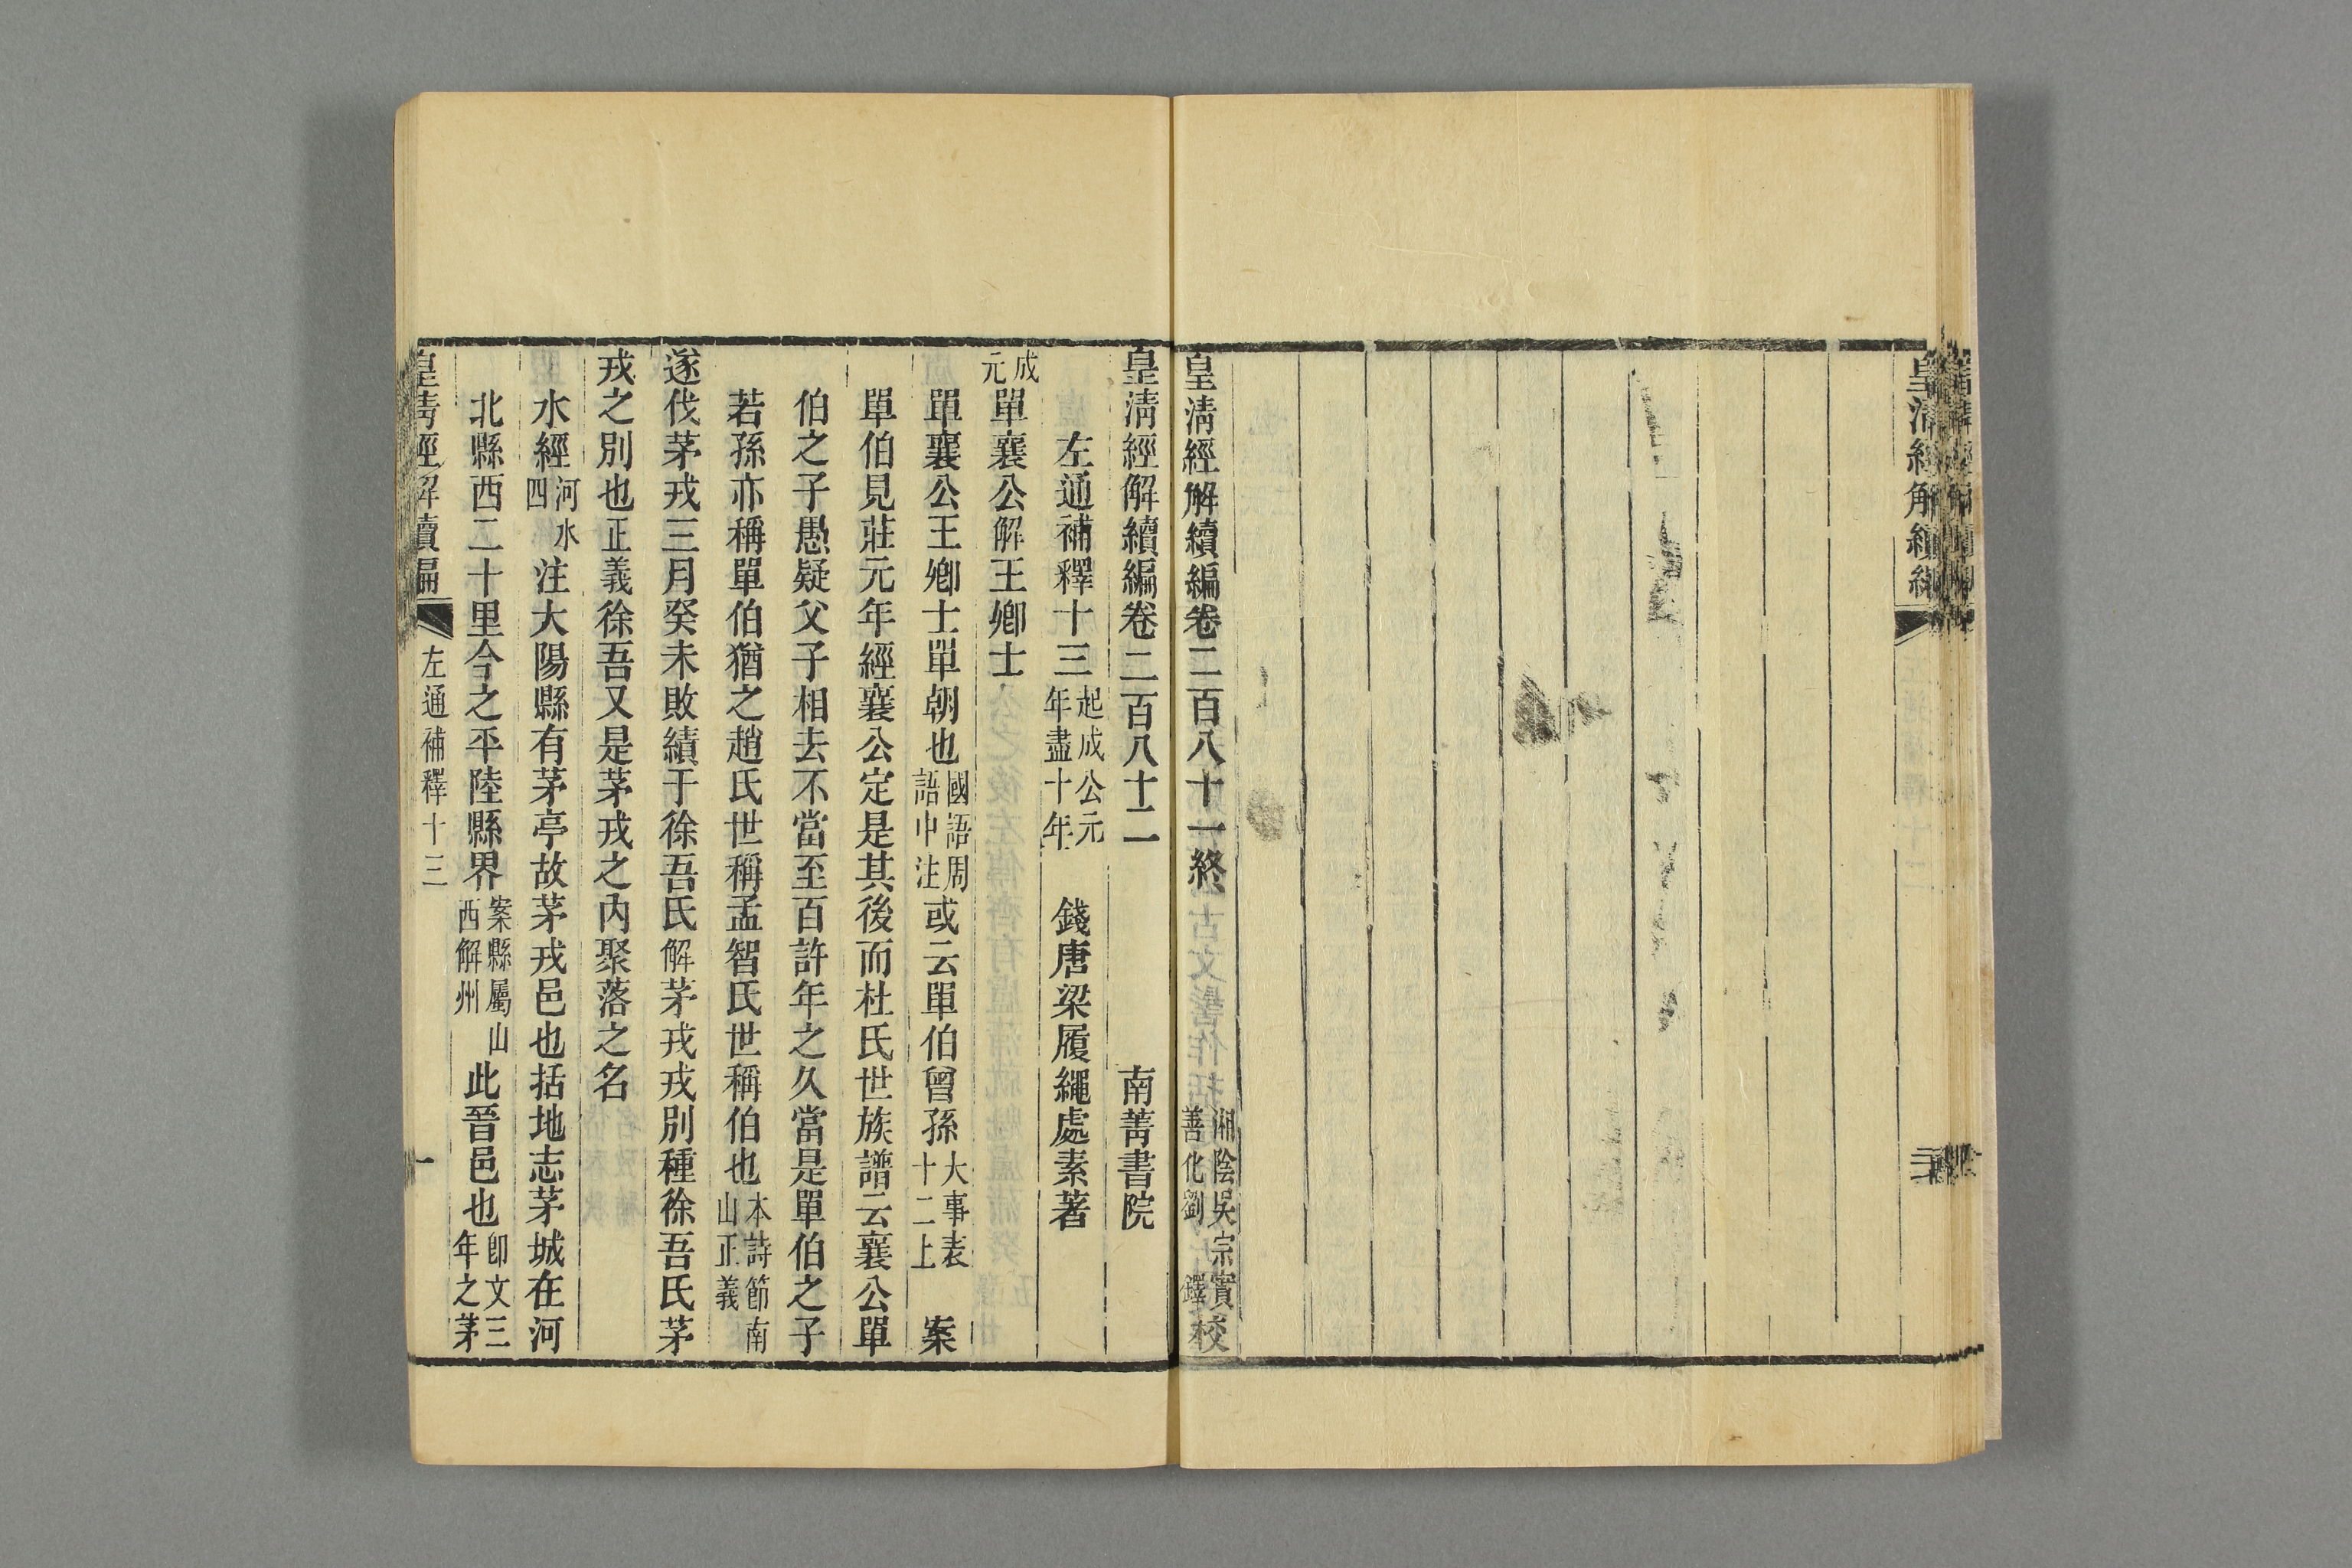 皇清經解續編
皇清經解續編卷二百八十一終
湘陰吳宗實
善化劉鐸校
皇清經解續編卷二百八十二 南菁書院
左通補釋十三起成公元年盡十年 錢唐梁履繩處素著
成元單襄公解王卿士
單襄公王卿士單朝也國語周語中注或云單伯曾孫大事表十二上 案
單伯見莊元年經襄公定是其後而杜氏世族譜云襄公單
伯之子愚疑父子相去不當至百許年之久當是單伯之子
若孫亦稱單伯猶之趙氏世稱孟智氏世稱伯也本詩節南山正義
遂伐茅戎三月癸未敗績于徐吾氏解茅戎戎別種徐吾氏茅
戎之別也正義徐吾又是茅戎之內聚落之名
水經河水四注大陽縣有茅亭故茅戎邑也括地志茅城在河
北縣西二十里今之平陸縣界案縣屬山西解州此晉邑也卽文三年之茅
皇清經解續編 左通補釋十三 一